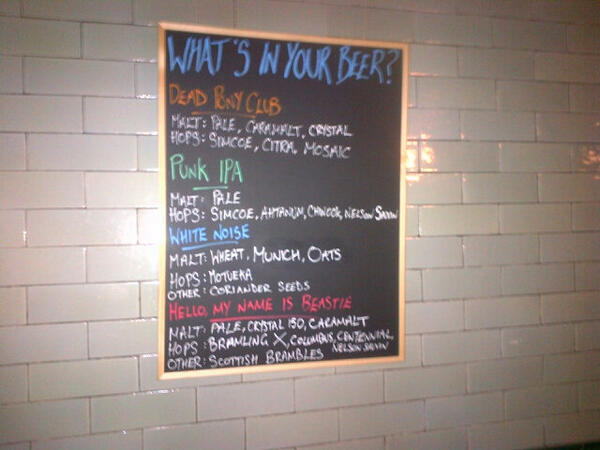 WHAT'S IN YOUR BEER?
DEAD PONY CLUB
MALT: PALE, CARAMALT, CRYSTAL
HOPS: SIMCOE, CITRA, MOSAIC
PUNK IPA
MALT: PALE
HOPS: SIMCOE, AHTANUM, CHINOOK, NELSON SAUVIN
WHITE NOISE
MALT: WHEAT, MUNICH, OATS
HOPS: MOTUEKA
OTHER: CORIANDER SEEDS
HELLO, MY NAME IS BEASTIE
MALT: PALE, CRYSTAL 150, CARAMALT
HOPS: BRAMLING X, COLUMBUS, CENTENNIAL,
NELSON SAUVIN
OTHER: SCOTTISH BRAMBLES